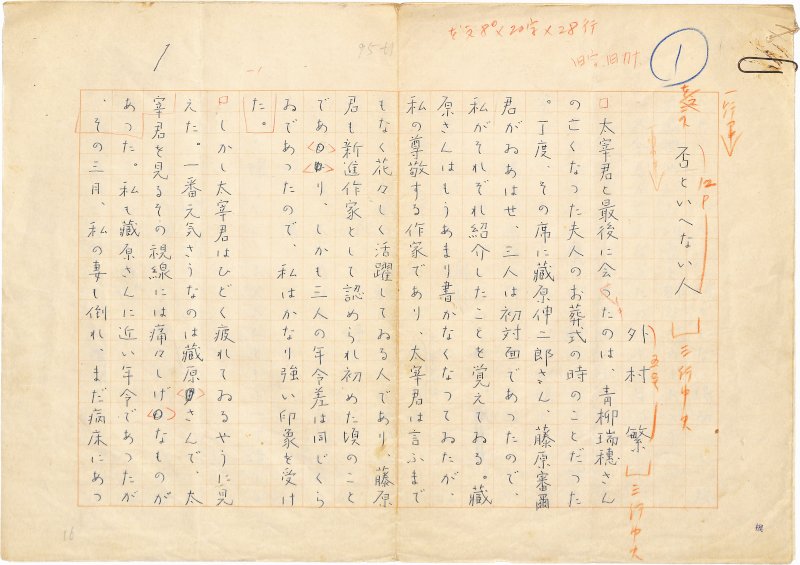 否といへない人
外村 繁
太宰君と最後に会つたのは、青柳瑞穂さん
の亡くなつた夫人のお葬式の時のことだつた
。丁度、その席に蔵原伸二郎さん、藤原審爾
君がゐあはせ、三人は初対面であつたので、
私がそれぞれ紹介したことを覚えてゐる。蔵
原さんはもうあまり書かなくなつてゐたが、
私の尊敬する作家であり、太宰君は言ふまで
もなく花々しく活躍してゐる人であり、藤原
君も新進作家として認められ初めた頃のこと
であり、しかも三人の年令差は同じくら
ゐであつたので、私はかなり強い印象を受け
た。
しかし太宰君はひどく疲れてゐるやうに見
えた。一番元気さうなのは蔵原さんで、太
宰君を見るその視線には痛々しげなものが
あつた。私も蔵原さんに近い年令であつたが
、その三月、私の妻も倒れ、まだ病床にあつ
①
8º×20字×28行
旧字.旧カナ.
一行アキ
12P
三行中央
5号
三行中央
16